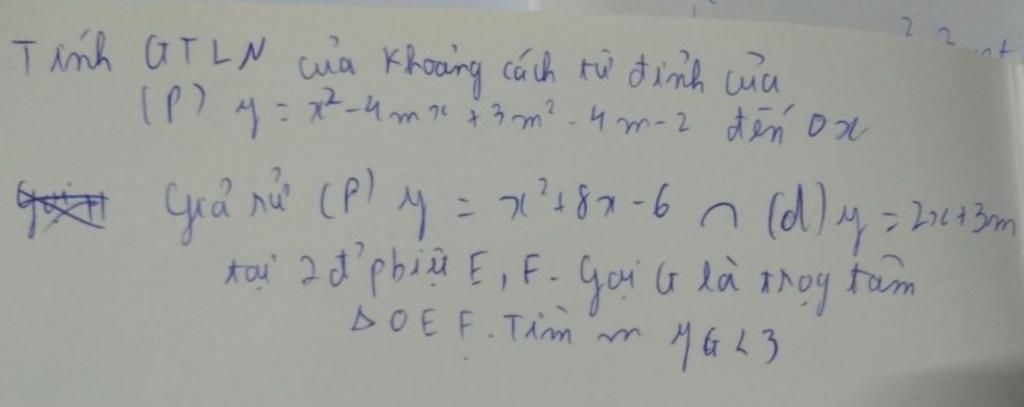 Tính GTLN của khoảng cách từ đỉnh của
(P) y = x² - 4mx + 3m² - 4m - 2 đến Ox
Giả sử (P) y = x² + 8x - 6 ∩ (d) y = 2x + 3m
tại 2 đ' pbiệt E, F. Gọi G là trọg tâm
Δ OEF. Tìm m yG < 3